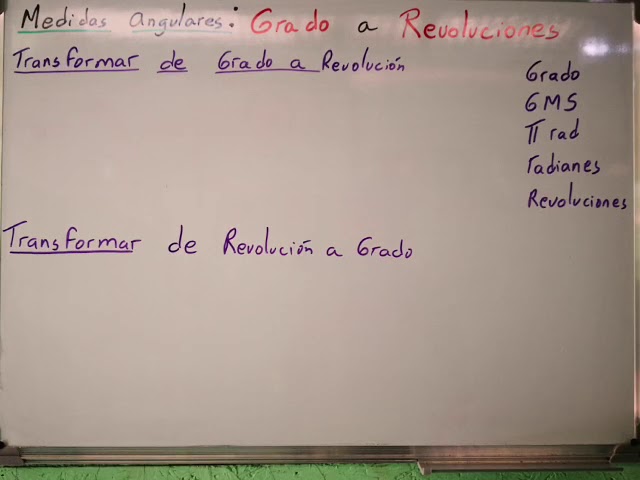 Medidas Angulares: Grado a Revoluciones
Transformar de Grado a Revolución
Grado
GMS
π rad
radianes
Revoluciones
Transformar de Revolución a Grado